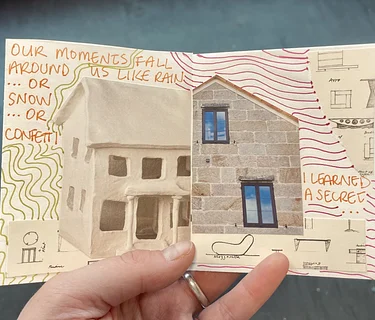 OUR MOMENTS FALL
AROUND US LIKE RAIN
... OR
SNOW
... OR
CONFETTI
I LEARNED
A SECRET...